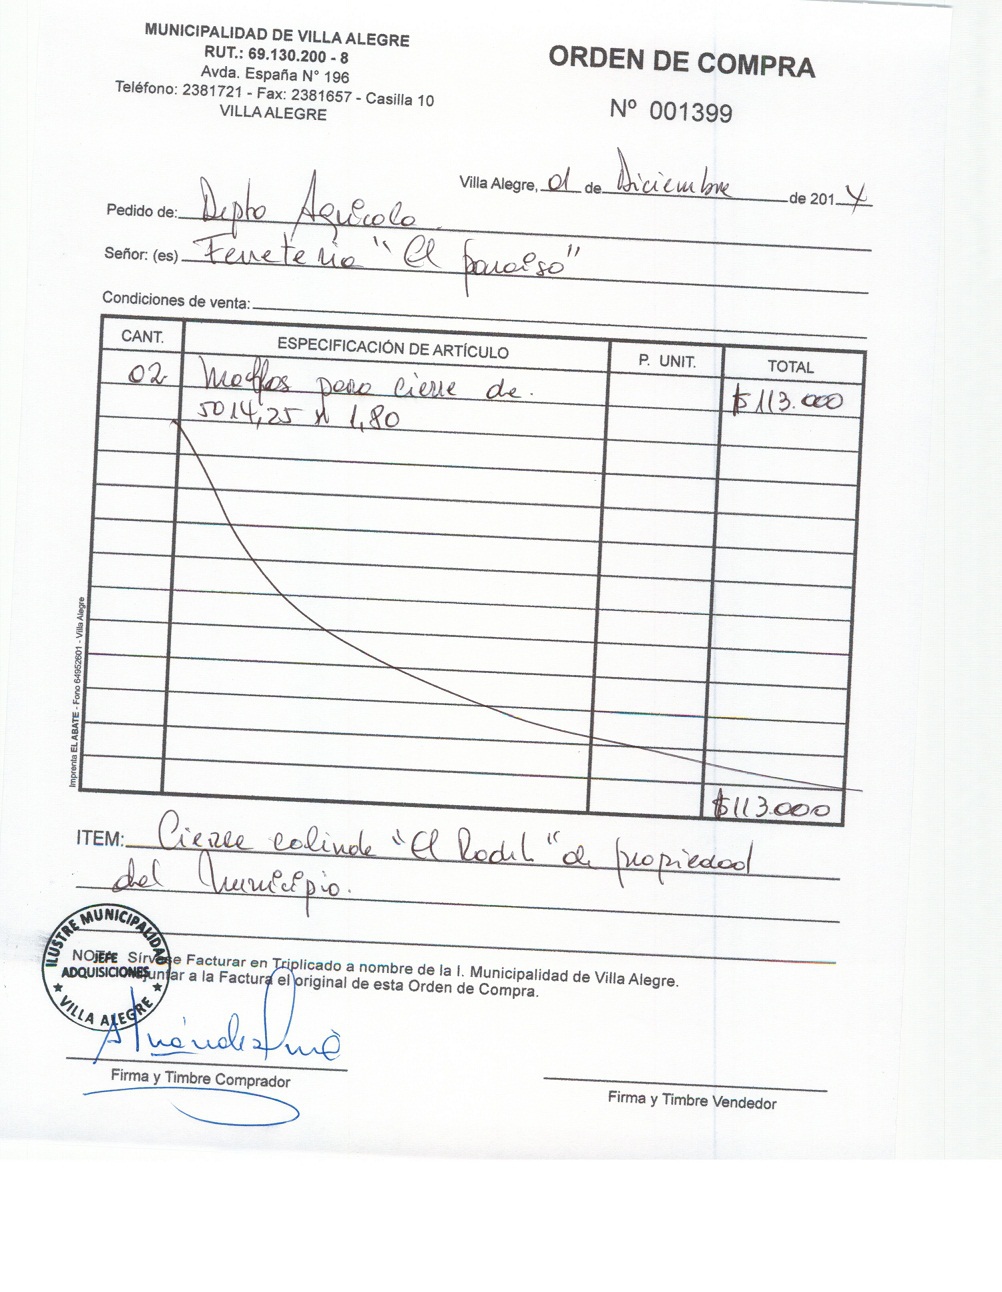 MUNICIPALIDAD DE VILLA ALEGRE
RUT.: 69.130.200 - 8
Avda. España N° 196
Teléfono: 2381721 - Fax: 2381657 - Casilla 10
VILLA ALEGRE
ORDEN DE COMPRA
Nº 001399
Villa Alegre, 01 de Diciembre de 2014
Pedido de: Depto Agricola
Señor: (es) Ferreteria "El paraiso"
Condiciones de venta:
CANT. ESPECIFICACIÓN DE ARTÍCULO P. UNIT. TOTAL
02 para cierre de. $113.000
5014,25 x 1,80
$113.000
ITEM: Cierre colinde "El" de propiedad
del Municipio.
NOTA: Sírvase Facturar en Triplicado a nombre de la I. Municipalidad de Villa Alegre.
Adjuntar a la Factura el original de esta Orden de Compra.
ILUSTRE MUNICIPALIDAD
JEFE
ADQUISICIONES
★ VILLA ALEGRE ★
Firma y Timbre Comprador
Firma y Timbre Vendedor
Imprenta EL ABATE - Fono 64952601 - Villa Alegre